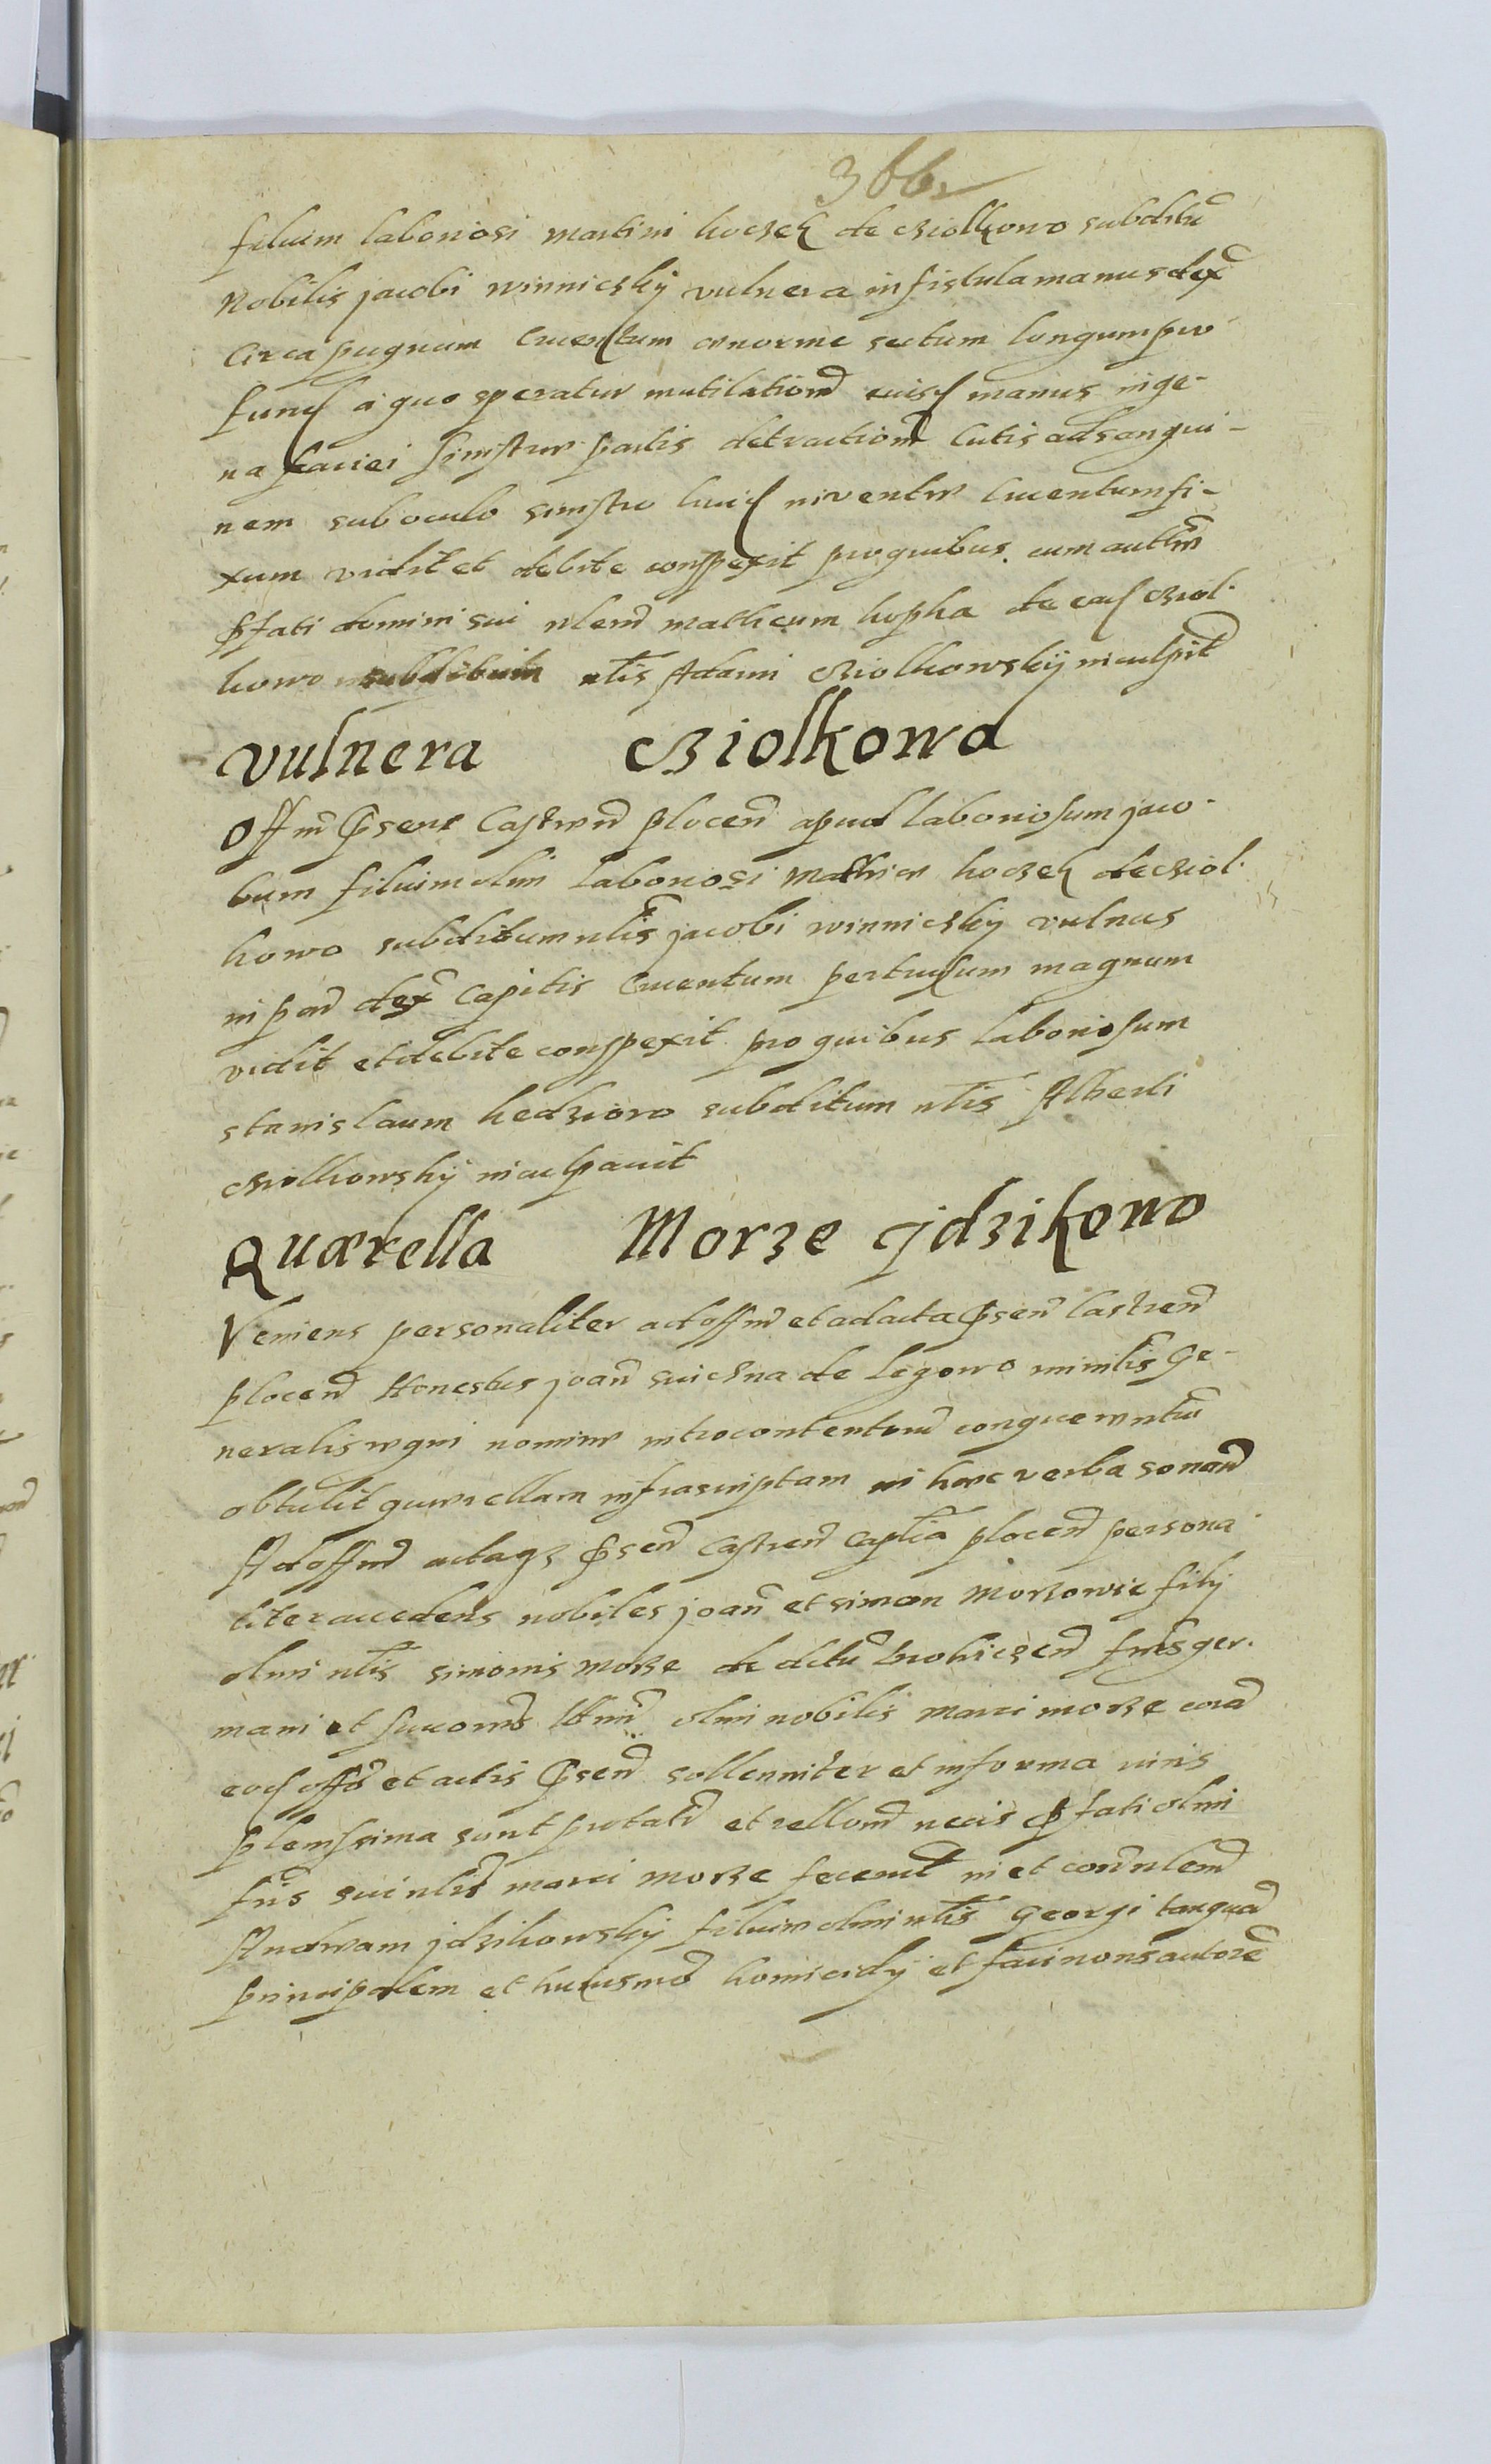 366
filium laboriosi martini koczek de cziolkowo subditu
Nobilis jacobi winniczkÿ vulnera in fistula manus dex
Circa pugnum Cruentum enorme sectum longum pro
fund a quo speratur mutilationem eiusd manus in ge-
na faciei sinistre partis detractionem Cutis ad sangui-
nem sub oculo sinistro livid in ventre Cruentum fi-
xum vidit et debite conspexit pro quibus cum
pfati domini sui matheum kopka de ead cziol-
kowo subditum nlis Adami cziolkowskÿ inculpavit
Vulnera cziolkowo
Offm psens Castren plocen apud laboriosum jaco-
bum filium olim laboriosi Mathie koczek de cziol-
kowo subditum nlis jacobi winniczkÿ vulnus
in par dex Capitis Cruentum pertusum magnum
vidit et debite conspexit pro quibus laboriosum
stanislaum kedzioro subditum nlis Alberti
cziolkowskÿ inculpavit
Quærella Morze jdzikowo
Veniens personaliter ad offm et ad acta psen Castren
plocen Honestus joan de legowo ministris Ge-
neralis regni nomine introcontentorum conquerentiu
obtulit querellam infrascriptam in hæc verba sonan
Ad offm actaqz psen Castren Captia plocen persona-
liter accedens nobiles joan et simon Morzowie filij
olim nlis simonis morze de frēs ger-
mani et olim nobilis marci morze cora
eod offo et actis psen sollenniter et in forma juris
plenissima sunt protati et necis pfati olim
fris sui nlis marci morze fecerunt in et
Andream jdzikowskÿ filium olim nlis Georgi tanqua
principalem et huiusmo homicidÿ et facinoris autore